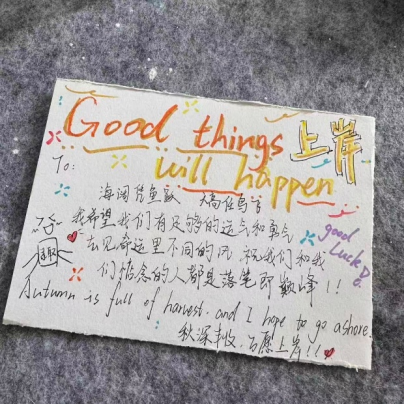 Good things 上岸
will happen
To:
海阔凭鱼跃 天高任鸟
我希望我们有足够的运气和勇气
去见命运里不同的风，祝我们和我
们惦念的人都是落笔即巅峰！！
good
luck
Autumn is full of harvest. and I hope to go ashore.
秋深丰收，百愿上岸！！